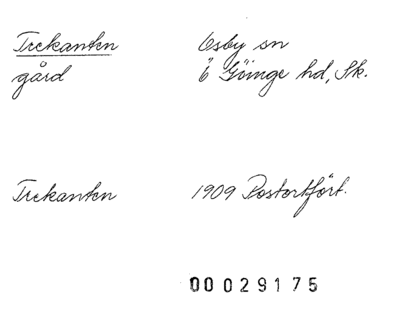 Trekanten Osby sn
gård Ö Göinge hd, Sk.
Trekanten 1909 Postortfört.
00029175